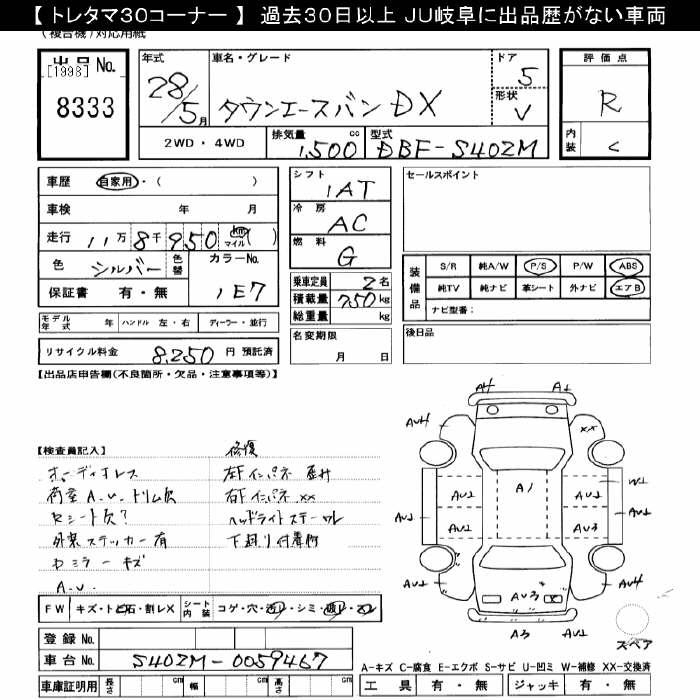 【 トレタマ30コーナー 】 過去30日以上 JU岐阜に出品歴がない車両
(複合機)対応用紙
出品 No.
[1998]
8333
年式
28/5月
車名・グレード
タウンエースバン DX
ドア
5
形状
V
評価点
R
内装
C
2WD・4WD
排気量
1,500 cc
型式
DBF-S402M
車歴 自家用・( )
車検 年 月
走行 11万8千950 km マイル ( )
色 シルバー 色替
カラーNo.
1E7
保証書 有・無
シフト
IAT
冷房
AC
燃料
G
乗車定員 2名
積載量 750kg
総重量 kg
名変期限
月 日
セールスポイント
装備品
S/R 純A/W P/S P/W ABS
純TV 純ナビ 革シート 外ナビ エアB
ナビ型番:
後日品
モデル年式 年 ハンドル 左・右 ディーラー・並行
リサイクル料金 8,250 円 預託済
【出品店申告欄(不良箇所・欠品・注意事項等)】
【検査員記入】
オーディオレス
荷室 A.U.トリム欠
Rシート欠?
外装ステッカー有
ミラーキズ
A.U.
修復
左Fインパネ 曲り
右Fインパネ XX
ヘッドライトステー
下廻り付着
A4 A1
AU4 XX
A1
AU2 AU2 AU2 W1
AU2 AU2 AU3 AU2
AU2 AU3 X AU4
A3 A2
スペア
FW キズ・トビ石・割レX シート内装 コゲ・穴・・シミ・・
登録 No.
車台 No. S402M-0059467
車庫証明用 長さ cm 幅 cm 高さ cm
A-キズ C-腐食 E-エクボ S-サビ U-凹ミ W-補修 XX-交換済
工具 有・無 ジャッキ 有・無